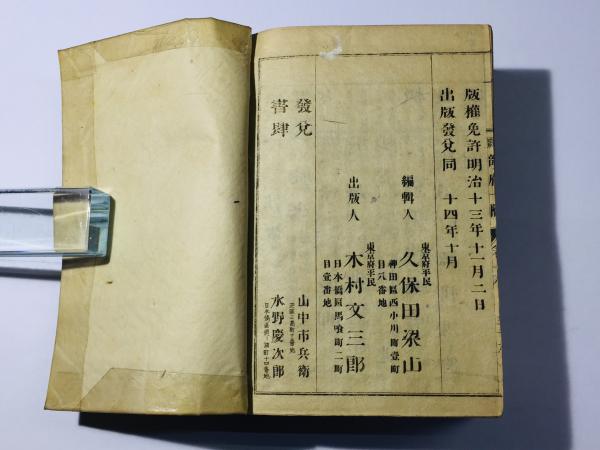 版權免許明治十三年十一月二日
出版發兌同 十四年十月
編輯人
東京府平民
久保田梁山
神田區西小川町壹町
目八番地
出版人
東京府平民
木村文三郎
日本橋區馬喰町二町
目壹番地
發兌
書肆
山中市兵衛
水野慶次郎